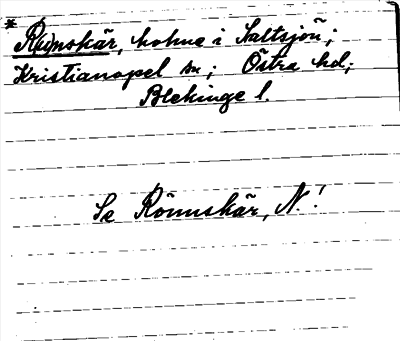 * Rönnskär, holme i Saltsjön;
Kristianopel sn; Östra hd;
Blekinge l.
Se Rönnskär, N.!